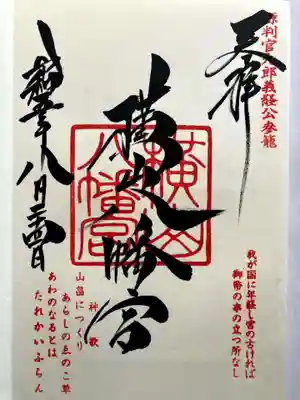 源判官九郎義経公参籠
奉拝
我が国に年経し宮の古ければ
御幣の串の立つ所なし
横山八幡宮
横山
八幡宮
八月
神歌
山畠につくり
あらしのゑのこ草
あわのなるとは
たれかいふらん